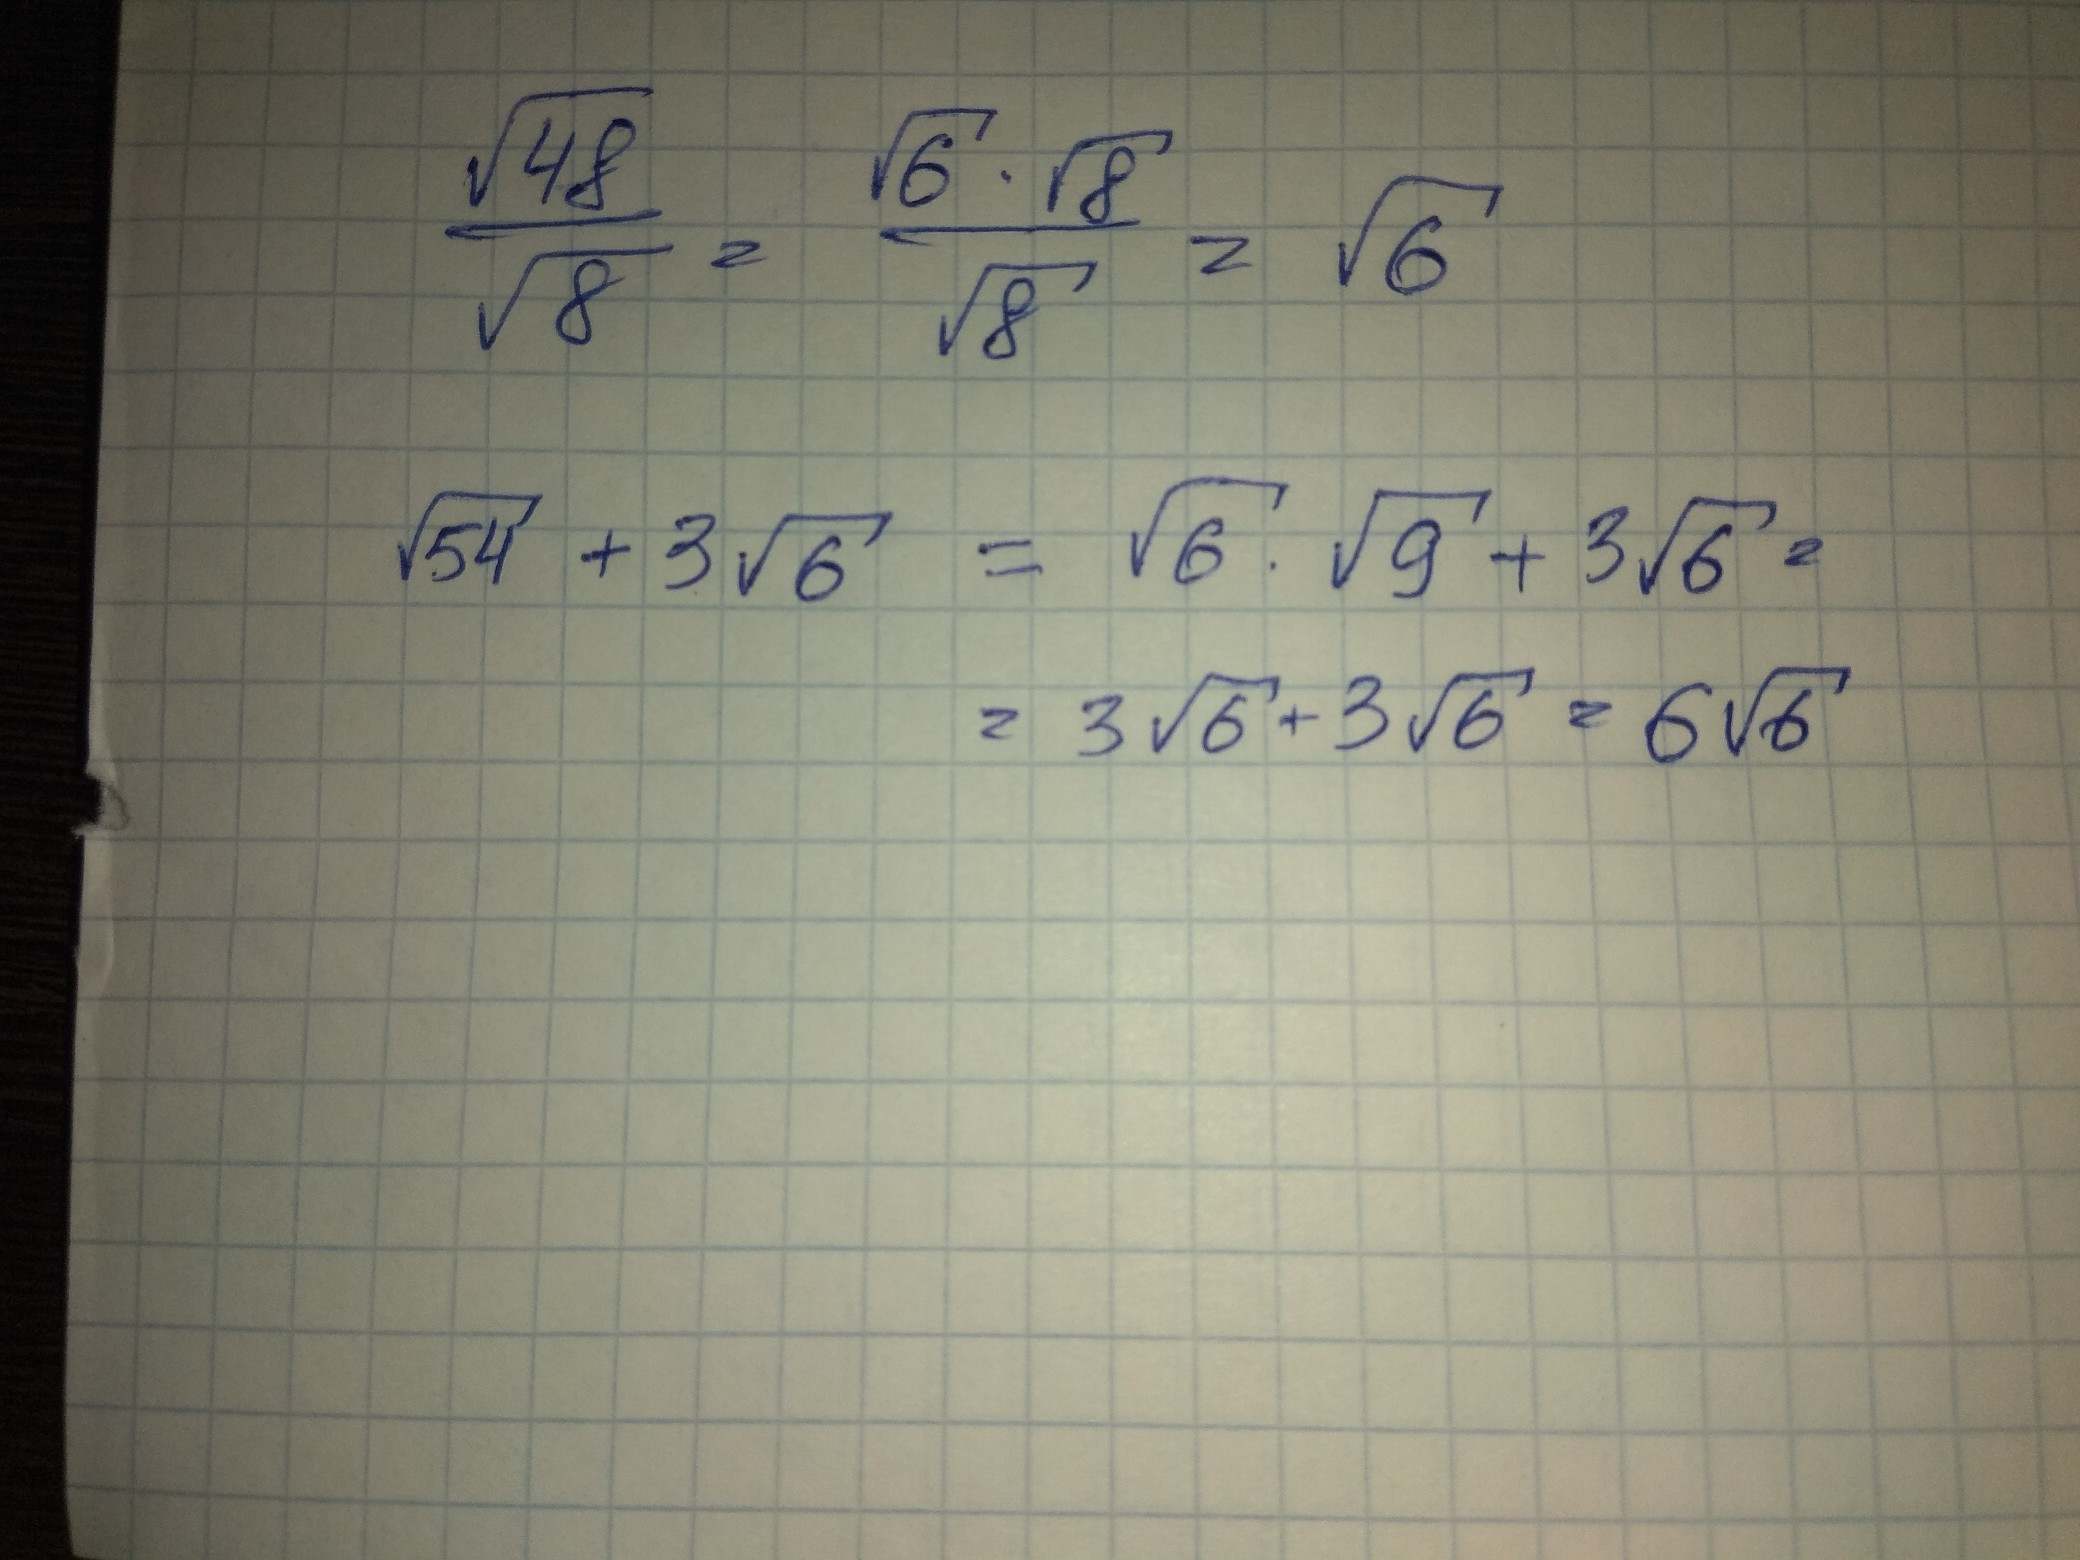 √48/√8 = √6 · √8/√8 = √6
√54 + 3√6 = √6 · √9 + 3√6 =
= 3√6 + 3√6 = 6√6